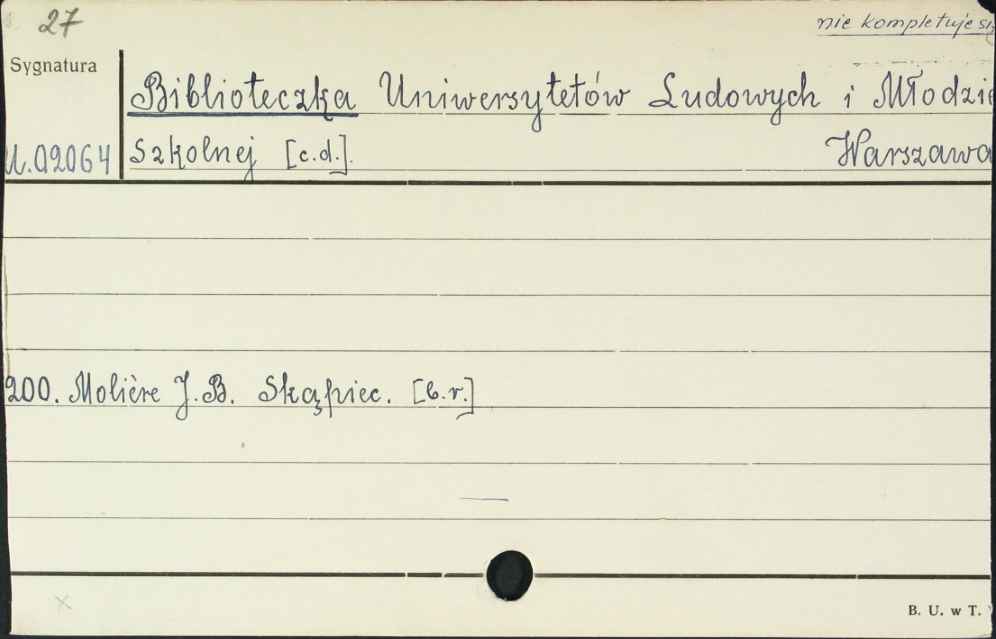 27
nie kompletuje się
Sygnatura
Biblioteczka Uniwersytetów Ludowych i Młodzie
U.02064
Szkolnej [c.d.].
Warszawa
200. Molière J.B. Skąpiec. [b.r.]
B. U. w T.